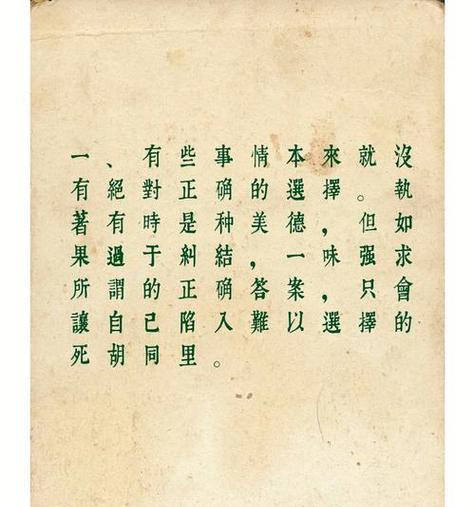 一、有些事情本來就沒
有絕對正确的選擇。執
著有時是种美德,但如
果過于糾結,一味强求
所謂的正确答案,只會
讓自己陷入難以選擇的
死胡同里。